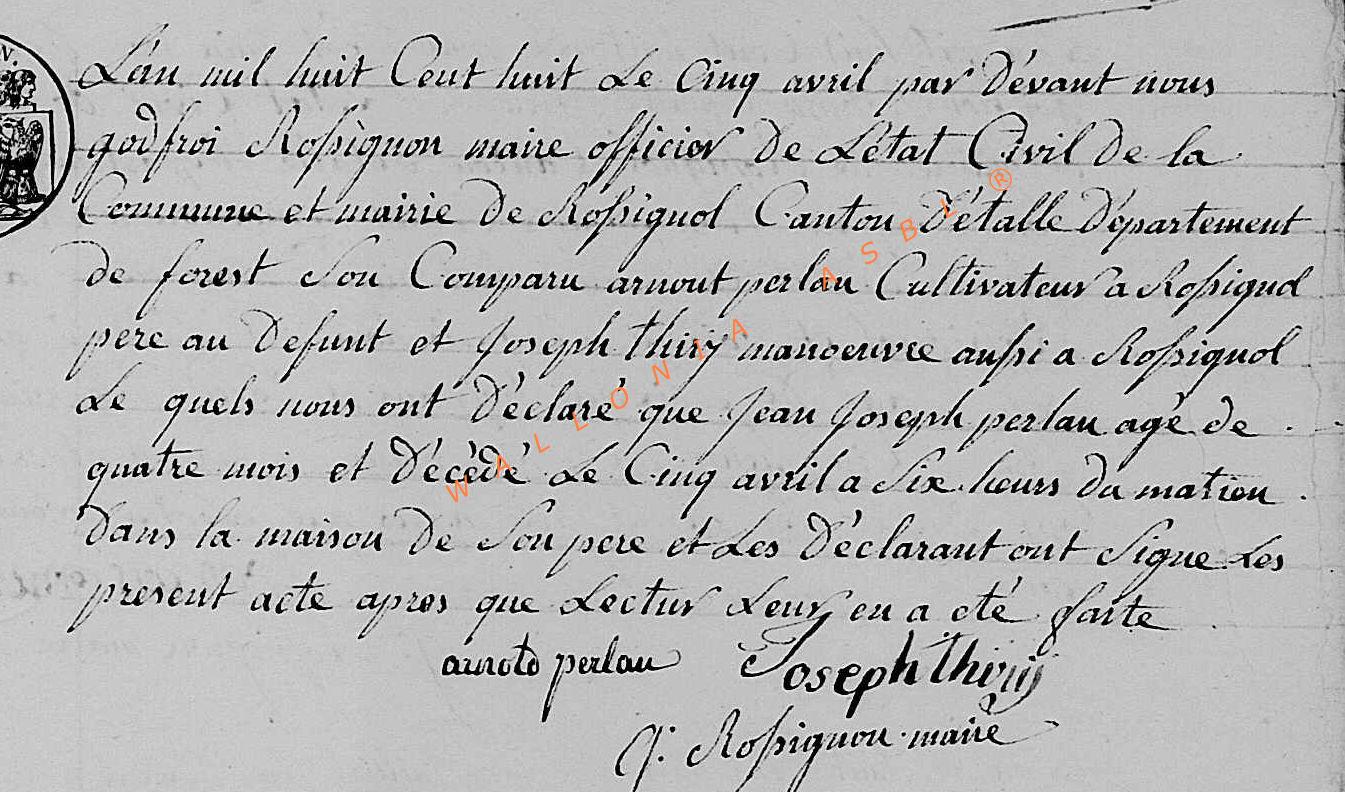 L'an mil huit Cent huit Le Cinq avril par Dévant nous
godfroi Rossignon maire officier De L'état Civil De la
Commune et mairie De Rossignol Canton D'étalle Département
de forest Son Comparu arnout perlau Cultivateur a Rossignol
pere au Defunt et Joseph thiry manoeuvre aussi a Rossignol
Le quels nous ont Déclaré que Jean Joseph perlau agé de
quatre mois et Décèdé Le Cinq avril a Six heurs Du matien
Dans la maison De Son pere et Les Déclarant ont Signe Les
present acte apres que Lectur Leur en a été faite
arnold perlau Joseph thiry
G: Rossignon maire
WALLONIA ASBL ®
N.